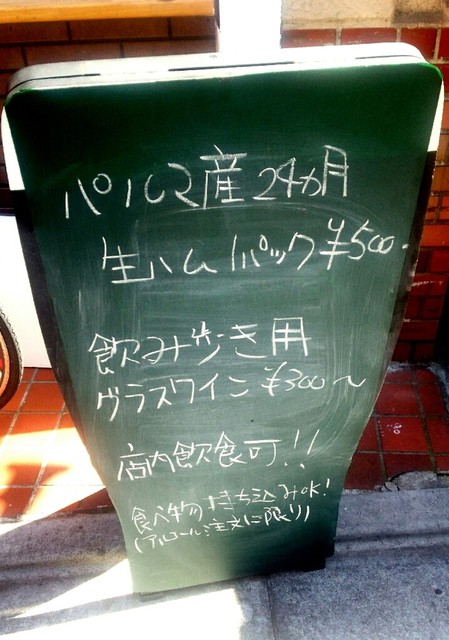 パルマ産24ヵ月
生ハム 1パック ¥500-
飲み歩き用
グラスワイン ¥300〜
店内飲食可!!
食べ物持ち込みOK!
(アルコール注文に限り)